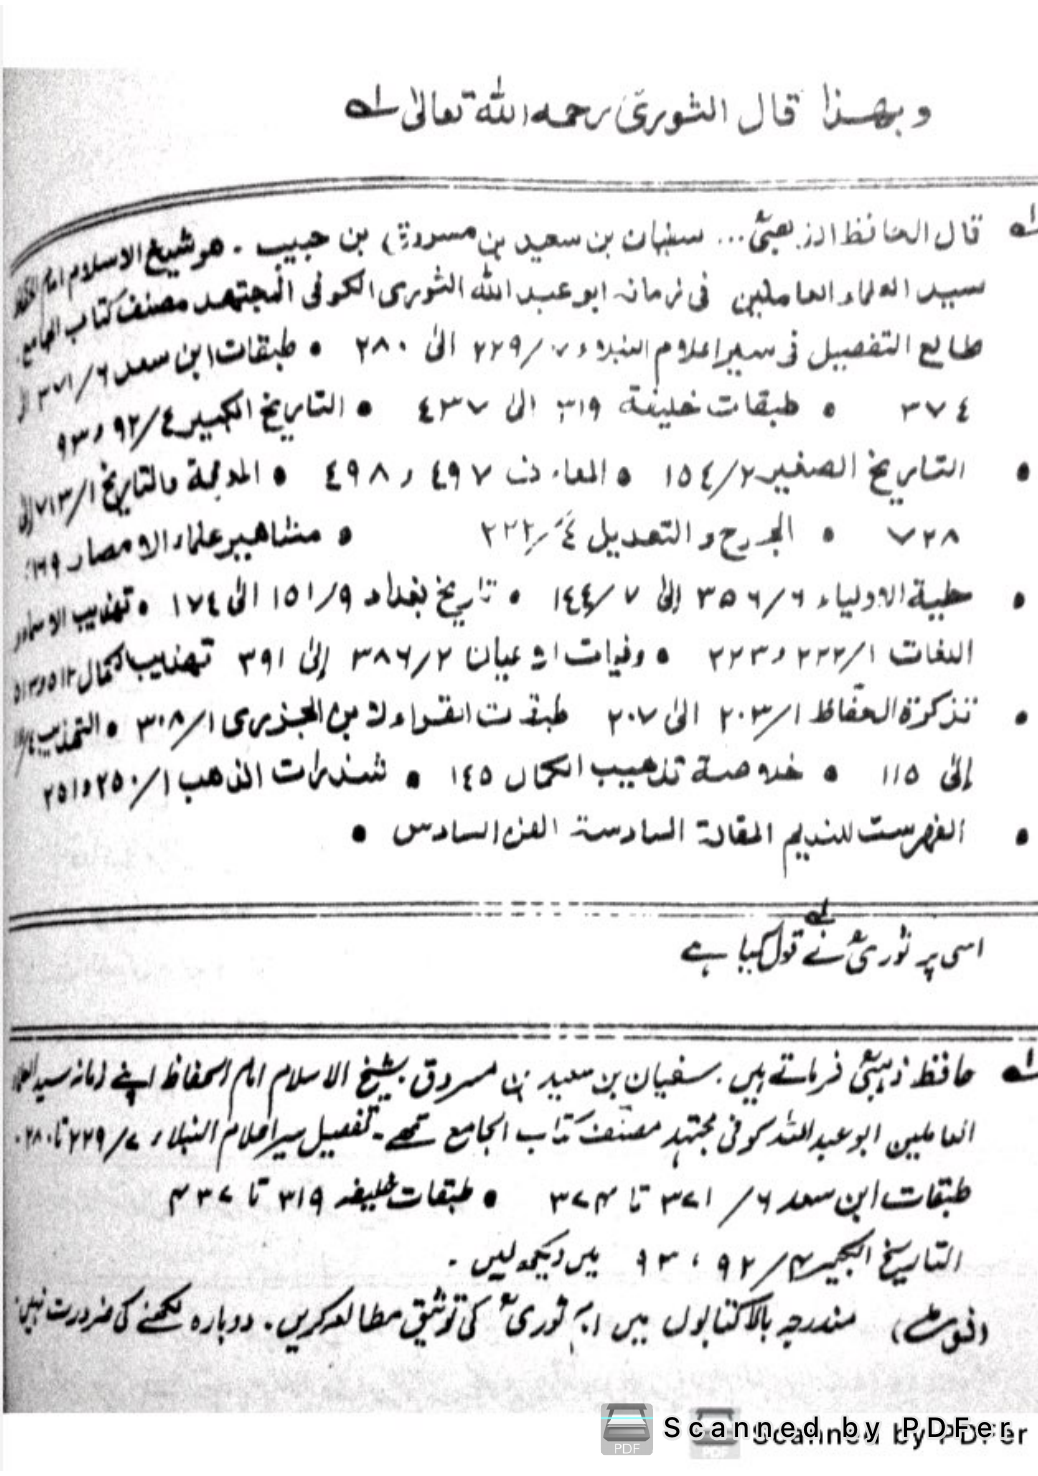 وبهذا قال الثوری رحمه الله تعالی له
له قال الحافظ الذهبیؒ... سفیان بن سعید بن مسروق بن حبیب . هو شیخ الاسلام امام الحفاظ
سید العلماء العاملین فی زمانه ابو عبد الله الثوری الکوفی المجتهد مصنف کتاب الجامع
طالع التفصیل فی سیر اعلام النبلاء ٢٢٩/٧ الی ٢٨٠ • طبقات ابن سعد ٣٧١/٦ الی
٣٧٤ • طبقات خلیفة ٣١٩ الی ٤٣٧ • التاریخ الکبیر ٩٢/٤ و ٩٣
• التاریخ الصغیر ١٥٤/٢ • المعارف ٤٩٧ و ٤٩٨ • المعرفة والتاریخ ٧١٣/١ إلی
٧٢٨ • الجرح و التعدیل ٢٢٢/٤ • مشاهیر علماء الامصار ١٦٩
• حلیة الاولیاء ٣٥٦/٦ إلی ١٤٤/٧ • تاریخ بغداد ١٥١/٩ الی ١٧٤ • تهذیب الاسماء و
اللغات ٢٢٢/١ و ٢٢٣ • وفیات الاعیان ٣٨٦/٢ إلی ٣٩١ تهذیب الکمال ٥١٢ و ٥١٣
• تذکرة الحفاظ ٢٠٣/١ الی ٢٠٧ طبقات القراء لابن الجزری ٣٠٨/١ • التهذیب
إلی ١١٥ • خلاصة تذهیب الکمال ١٤٥ • شذرات الذهب ٢٥٠/١ و ٢٥١
• الفهرست للندیم المقالة السادسة الفن السادس •
اسی پر ثوریؒ نے قول کیا ہے له
له حافظ ذہبیؒ فرماتے ہیں . سفیان بن سعید بن مسروق . شیخ الاسلام امام الحفاظ اپنے زمانہ سید العلماء
العاملین ابو عبد اللہ کوفی مجتہد مصنف کتاب الجامع تھے ۔ تفصیل سیر اعلام النبلاء ٢٢٩/٧ تا ٢٨٠ .
طبقات ابن سعد ٦ / ٣٧١ تا ٣٧۴ • طبقات خلیفہ ٣١٩ تا ۴٣٧
التاریخ الکبیر ۴/ ٩٢ ، ٩٣ میں دیکھ لیں .
(نوٹ) مندرجہ بالا کتابوں میں امام ثوریؒ کی توثیق مطالعہ کریں . دوبارہ لکھنے کی ضرورت نہیں
Scanned by PDFer
Scanned by PDFer
PDF
PDF